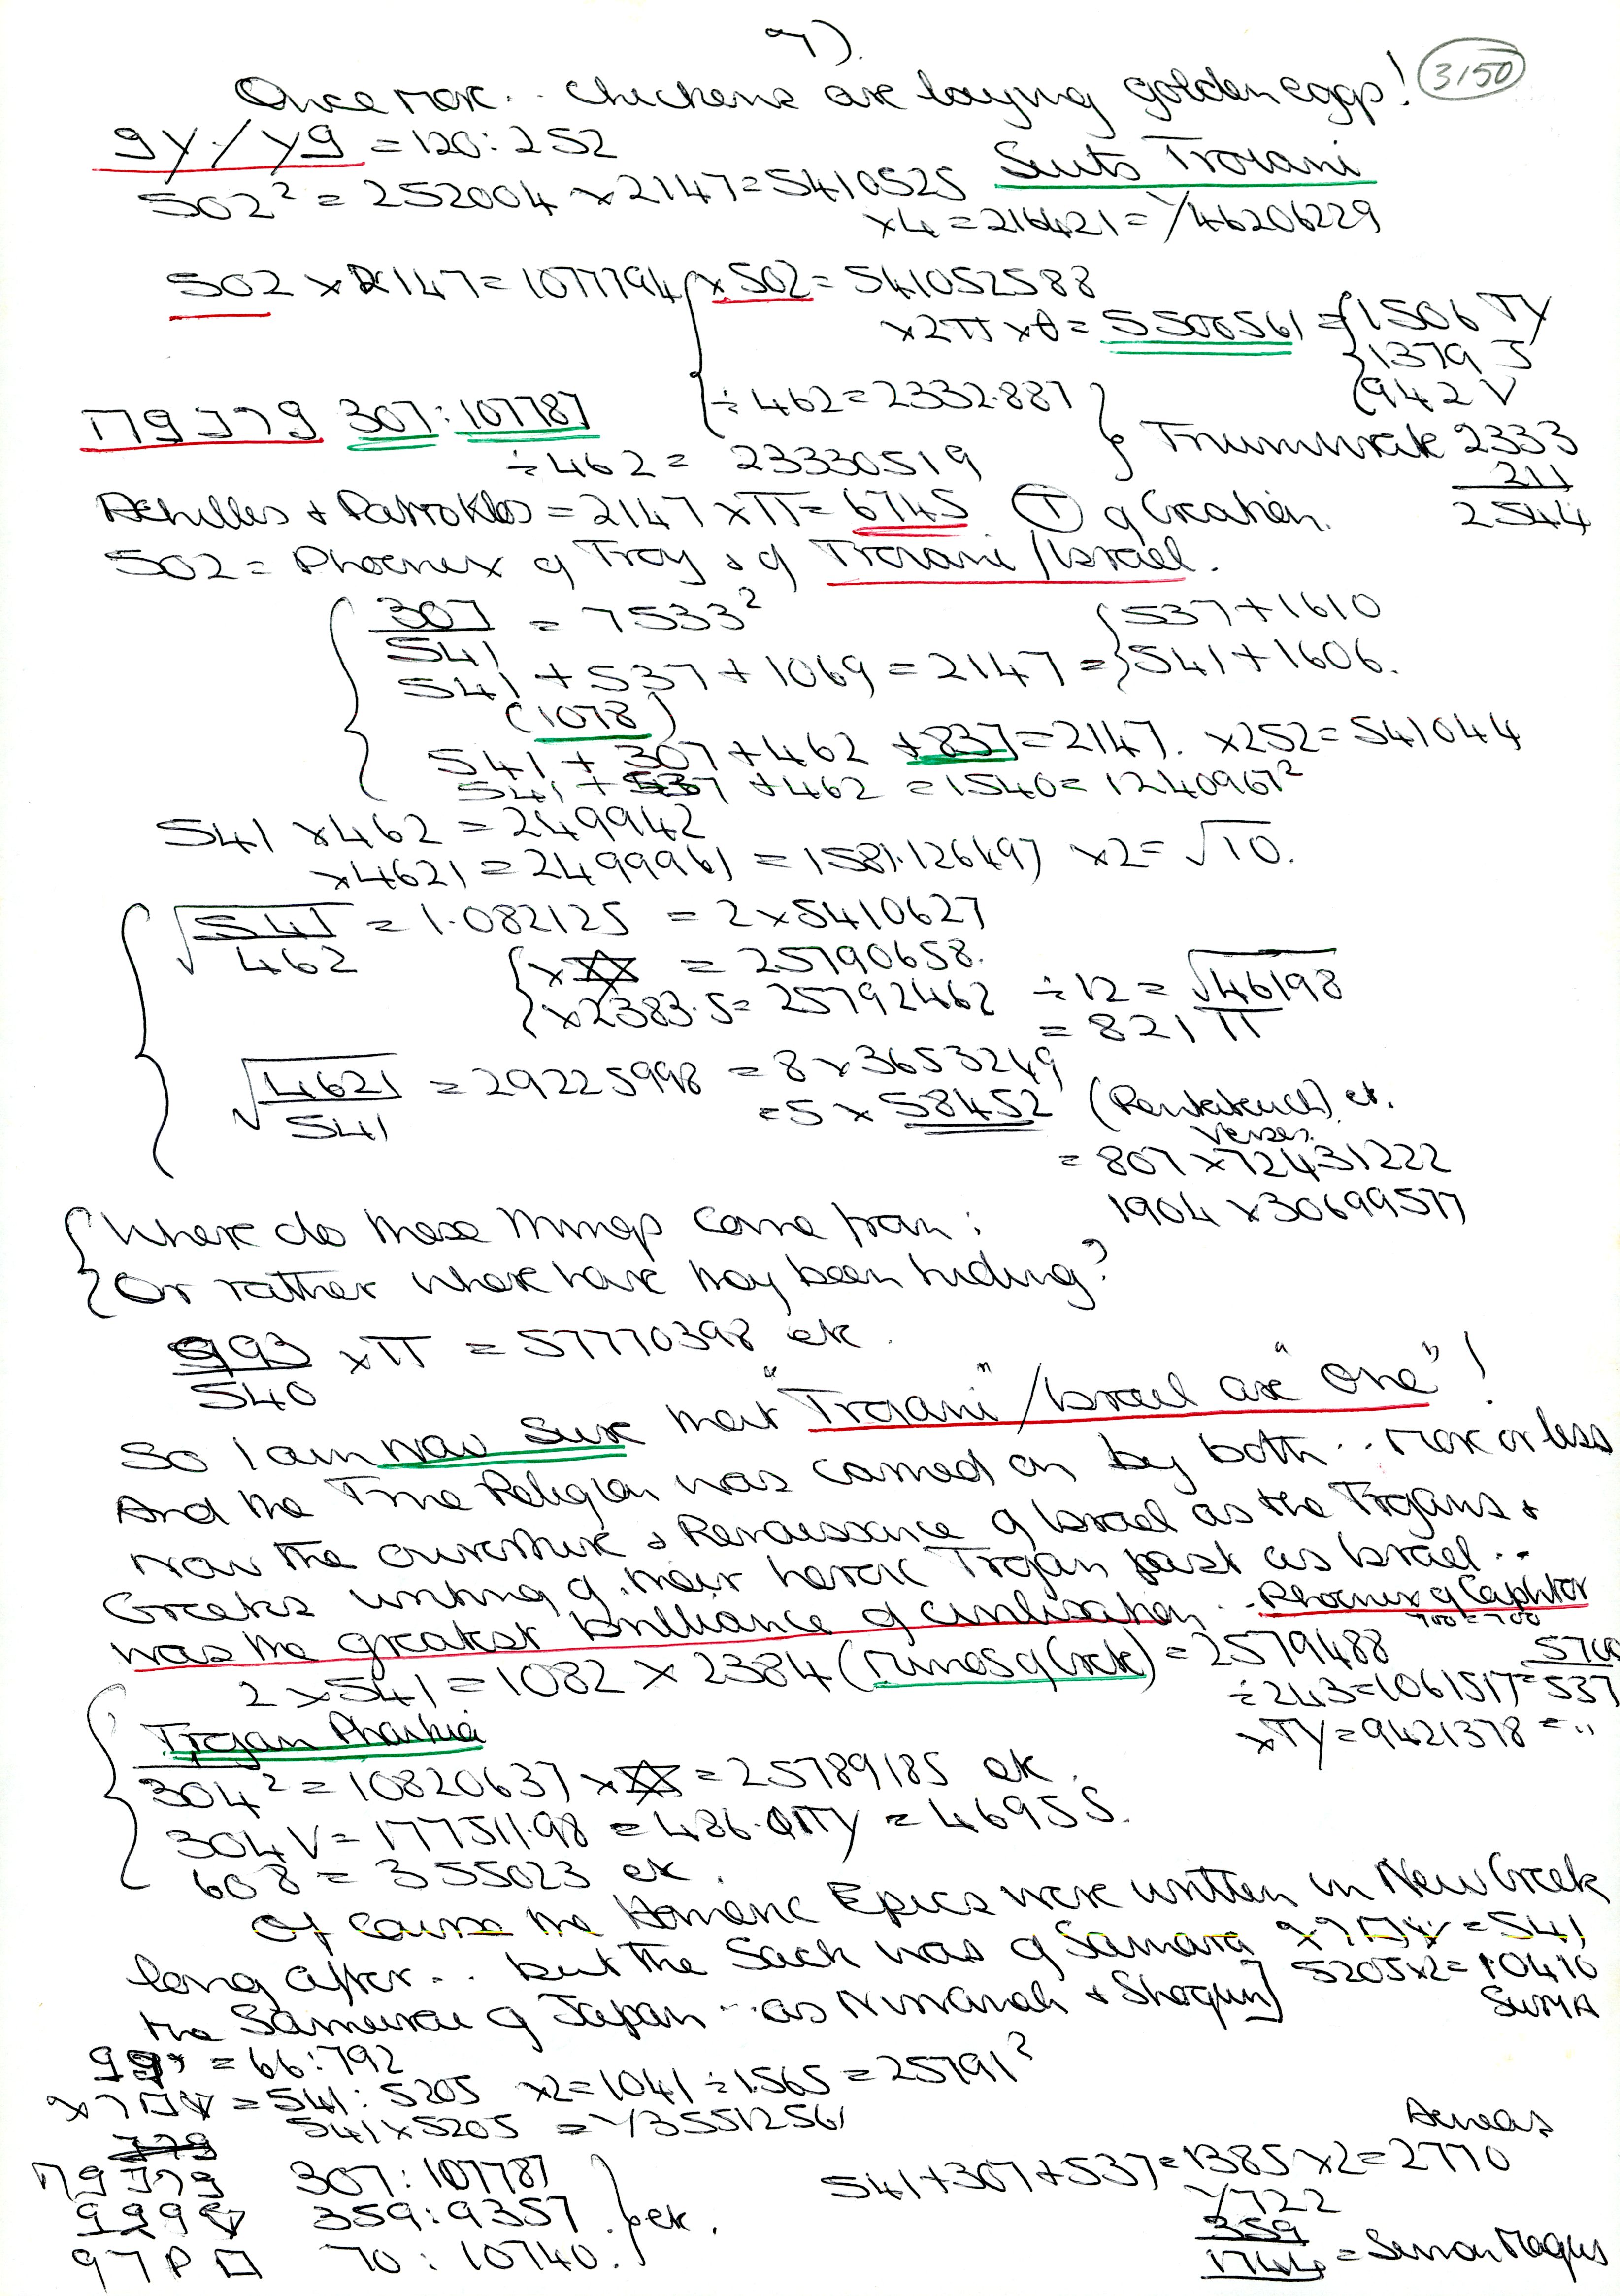 7).
3150
Once more.. chickens are laying golden eggs!
= 120:252
Suits Trojani
502² = 252004 x 2147 = 5410525
x4 = 216421 = Y46206229
502 x 2147 = 1077794 { x 502 = 541052588
x 2π x θ = 5506561 = { 1506 πy
1379 J
942 V
÷ 462 = 2332.887 }
307:107787
÷ 462 = 23330519
2333
211
2544
Achilles + Patroklos = 2147 x π = 6745 (T) of Creation.
502 = Phoenix of Troy & of Trojani/Israel.
307/541 = 7533²
541 + 537 + 1069 = 2147 = { 537 + 1610
541 + 1606.
(1078)
541 + 307 + 462 + 837 = 2147. x252 = 541044
541 + 537 + 462 = 1540 = 1240967²
541 x 462 = 249942
x 4621 = 2499961 = 1581.126497 x2 = √10.
√541/462 = 1.082125 = 2 x 5410627
x ✡ = 25790658.
x 2383.5 = 25792462 ÷ 12 = √46198
= 821 π
√4621/541 = 29225998 = 8 x 3653249
= 5 x 58452 (Pentateuch) et.
Verses.
= 807 x 72431222
1904 x 30699577
Where do these things come from:
Or rather where have they been hiding?
993/540 x π = 57770398 etc.
So I am now sure that "Trojani"/Israel are "one"!
And the True Religion was carried on by both.. more or less
now the overture & Renaissance of Israel as the Trojans &
Greeks writing of their heroic Trojan past as Israel..
was the greatest brilliance of civilisation.. Phoenix of Caphtor
700 = 700
2 x 541 = 1082 x 2384 (Minos of Crete) = 2579488
÷ 243 = 1061517 = 537
x πy = 9421378 = "
Trojan
304² = 10820637 x ✡ = 25789185 etc.
304 V = 177511.98 = 486. πy = 4695 S.
608 = 355023 etc.
Of course the Homeric Epics were written in New Greek
long after... but the Sack was of Samara = 541
5205 x 2 = 10410
SUMA
the Samurai of Japan.. as & Shogun]
= 66:792
= 541:5205 x2 = 1041 ÷ 1.565 = 25791²
541 x 5205 = Y35512561
307:107787
359:9357 } etc.
70:10740.
Aeneas
541 + 307 + 537 = 1385 x 2 = 2770
Y722
359
1744 = Simon Magus